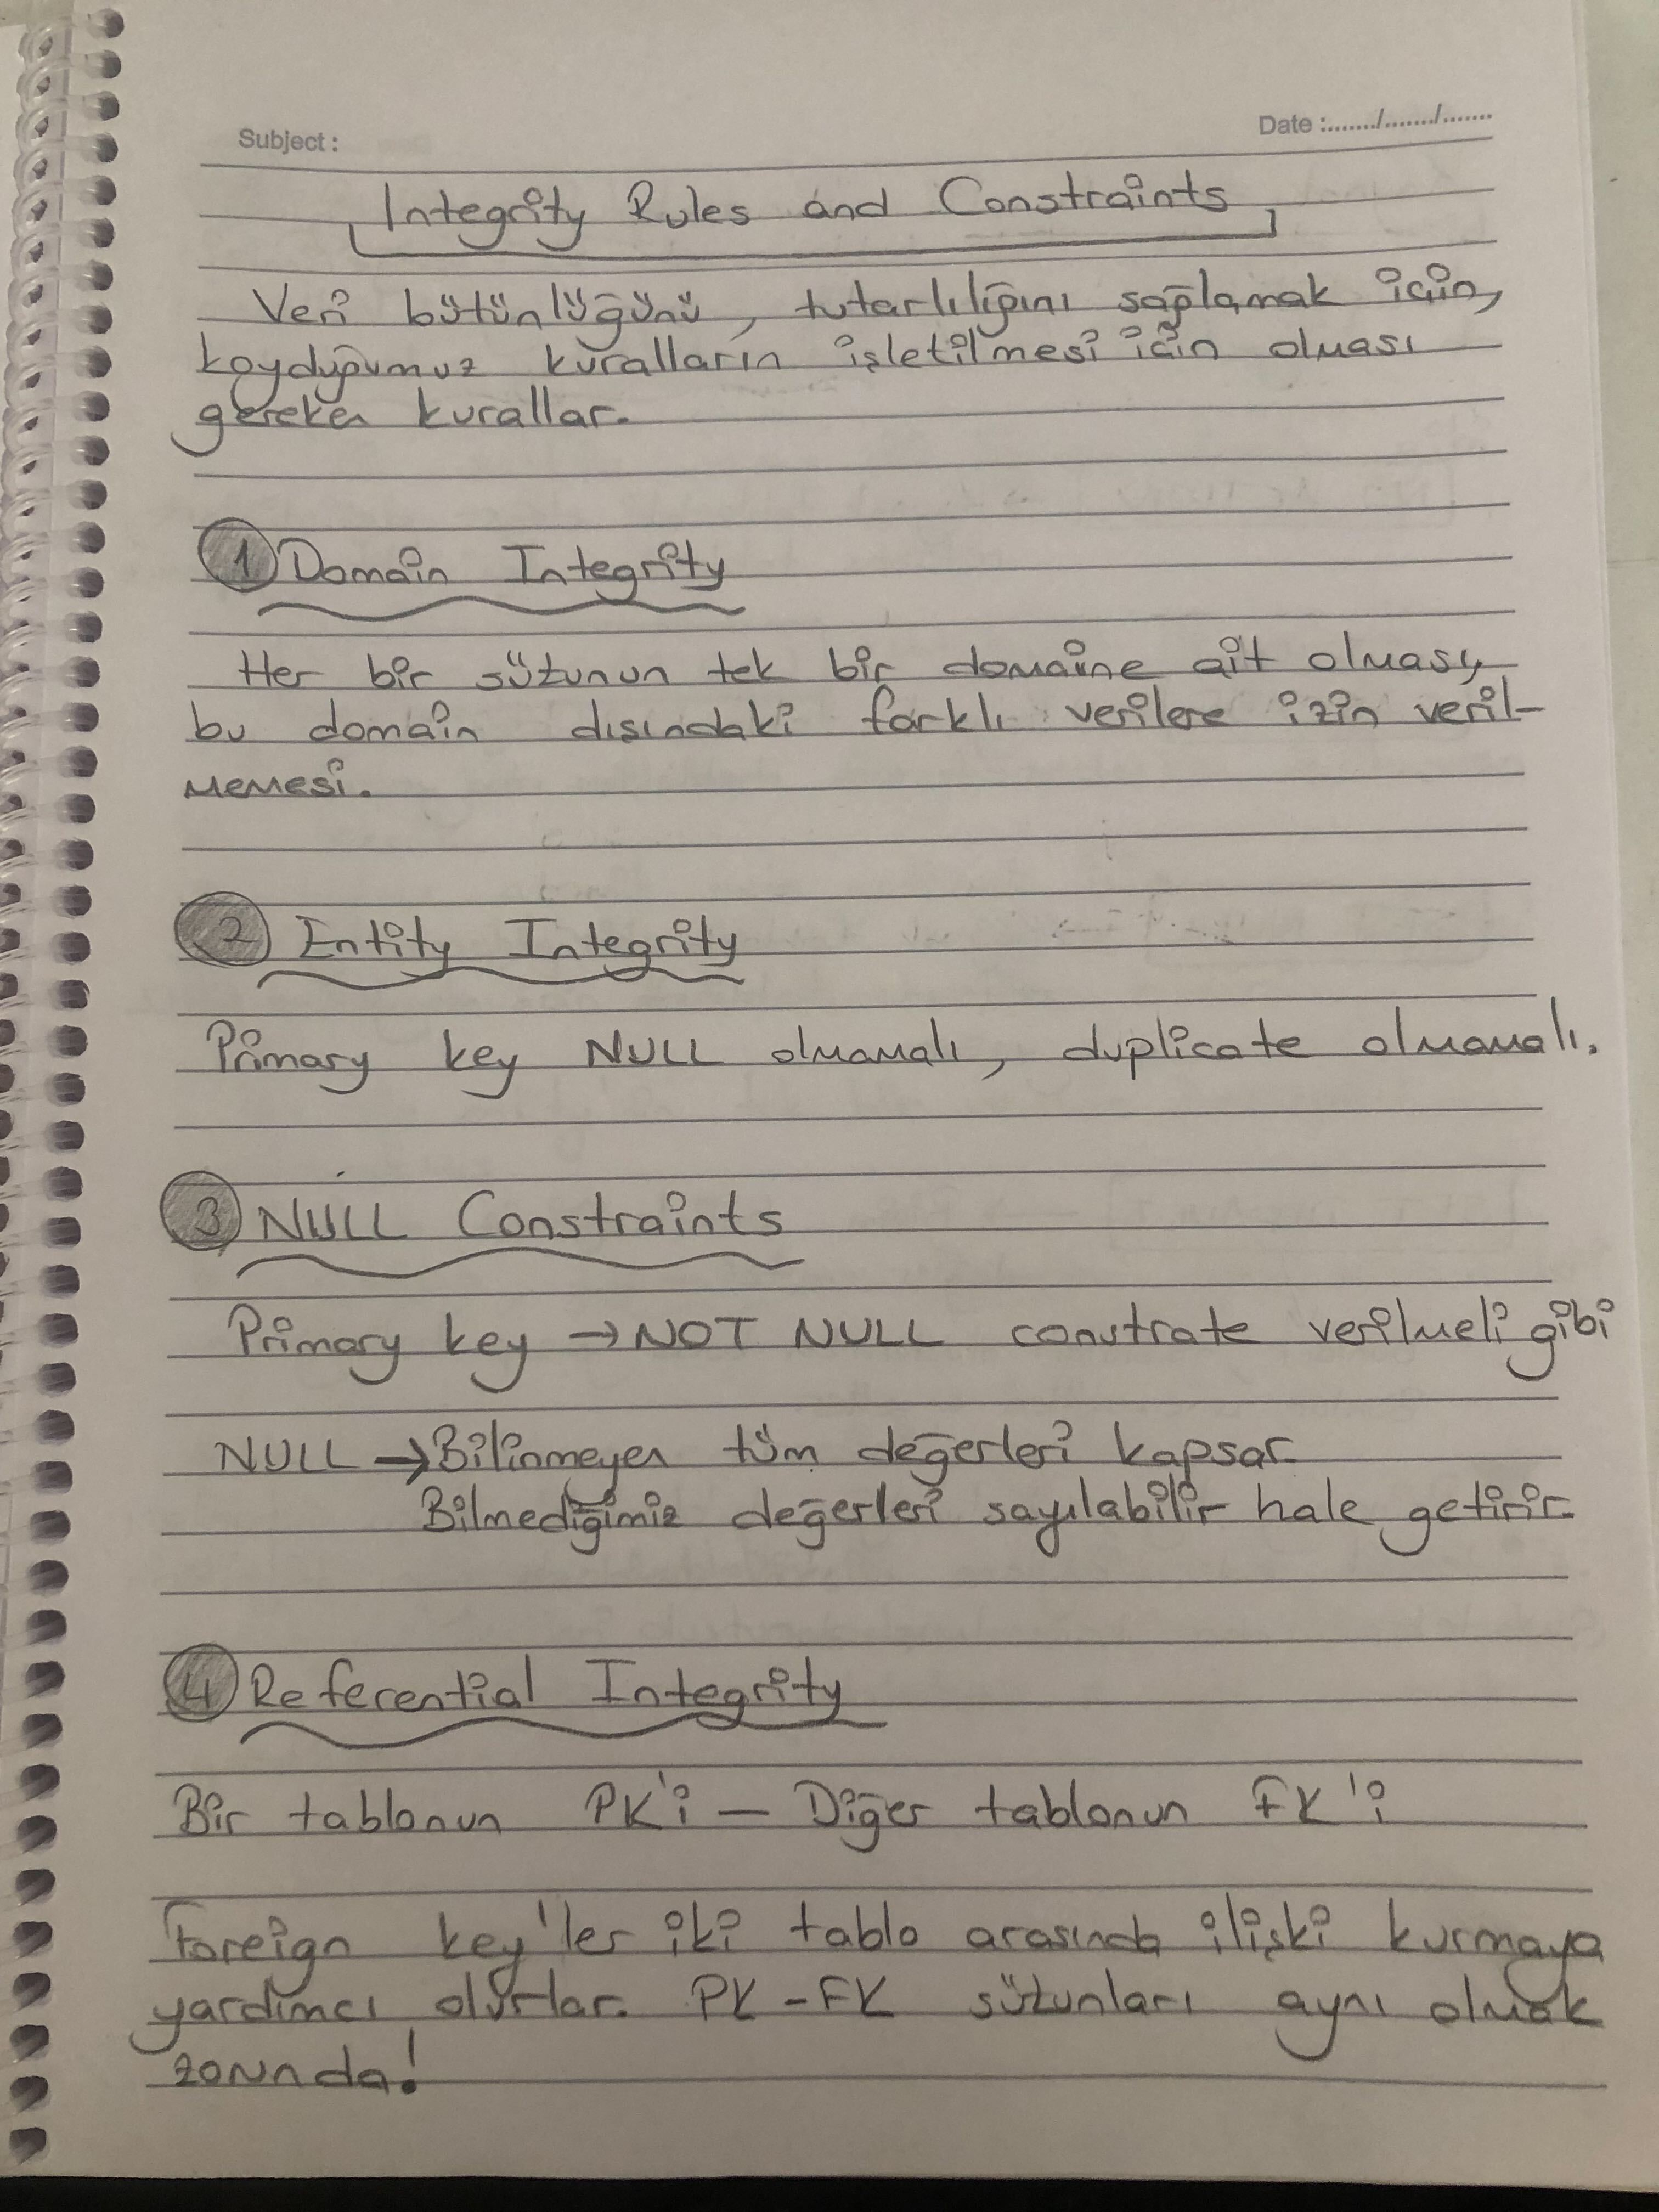 Subject :
Date :......./......./.......
Integrity Rules and Constraints
Veri bütünlüğünü, tutarlılığını sağlamak için,
koyduğumuz kuralların işletilmesi için olması
gereken kurallar.
1 Domain Integrity
Her bir sütunun tek bir domaine ait olması,
bu domain dışındaki farklı verilere izin veril-
memesi.
2 Entity Integrity
Primary key NULL olmamalı, duplicate olmamalı.
3 NULL Constraints
Primary key → NOT NULL constrate verilmeli gibi
NULL → Bilinmeyen tüm değerleri kapsar.
Bilmediğimiz değerleri sayılabilir hale getirir.
4 Referential Integrity
Bir tablonun PK'i — Diğer tablonun FK'i
Foreign key'ler iki tablo arasında ilişki kurmaya
yardımcı olurlar. PK-FK sütunları aynı olmak
zorunda!